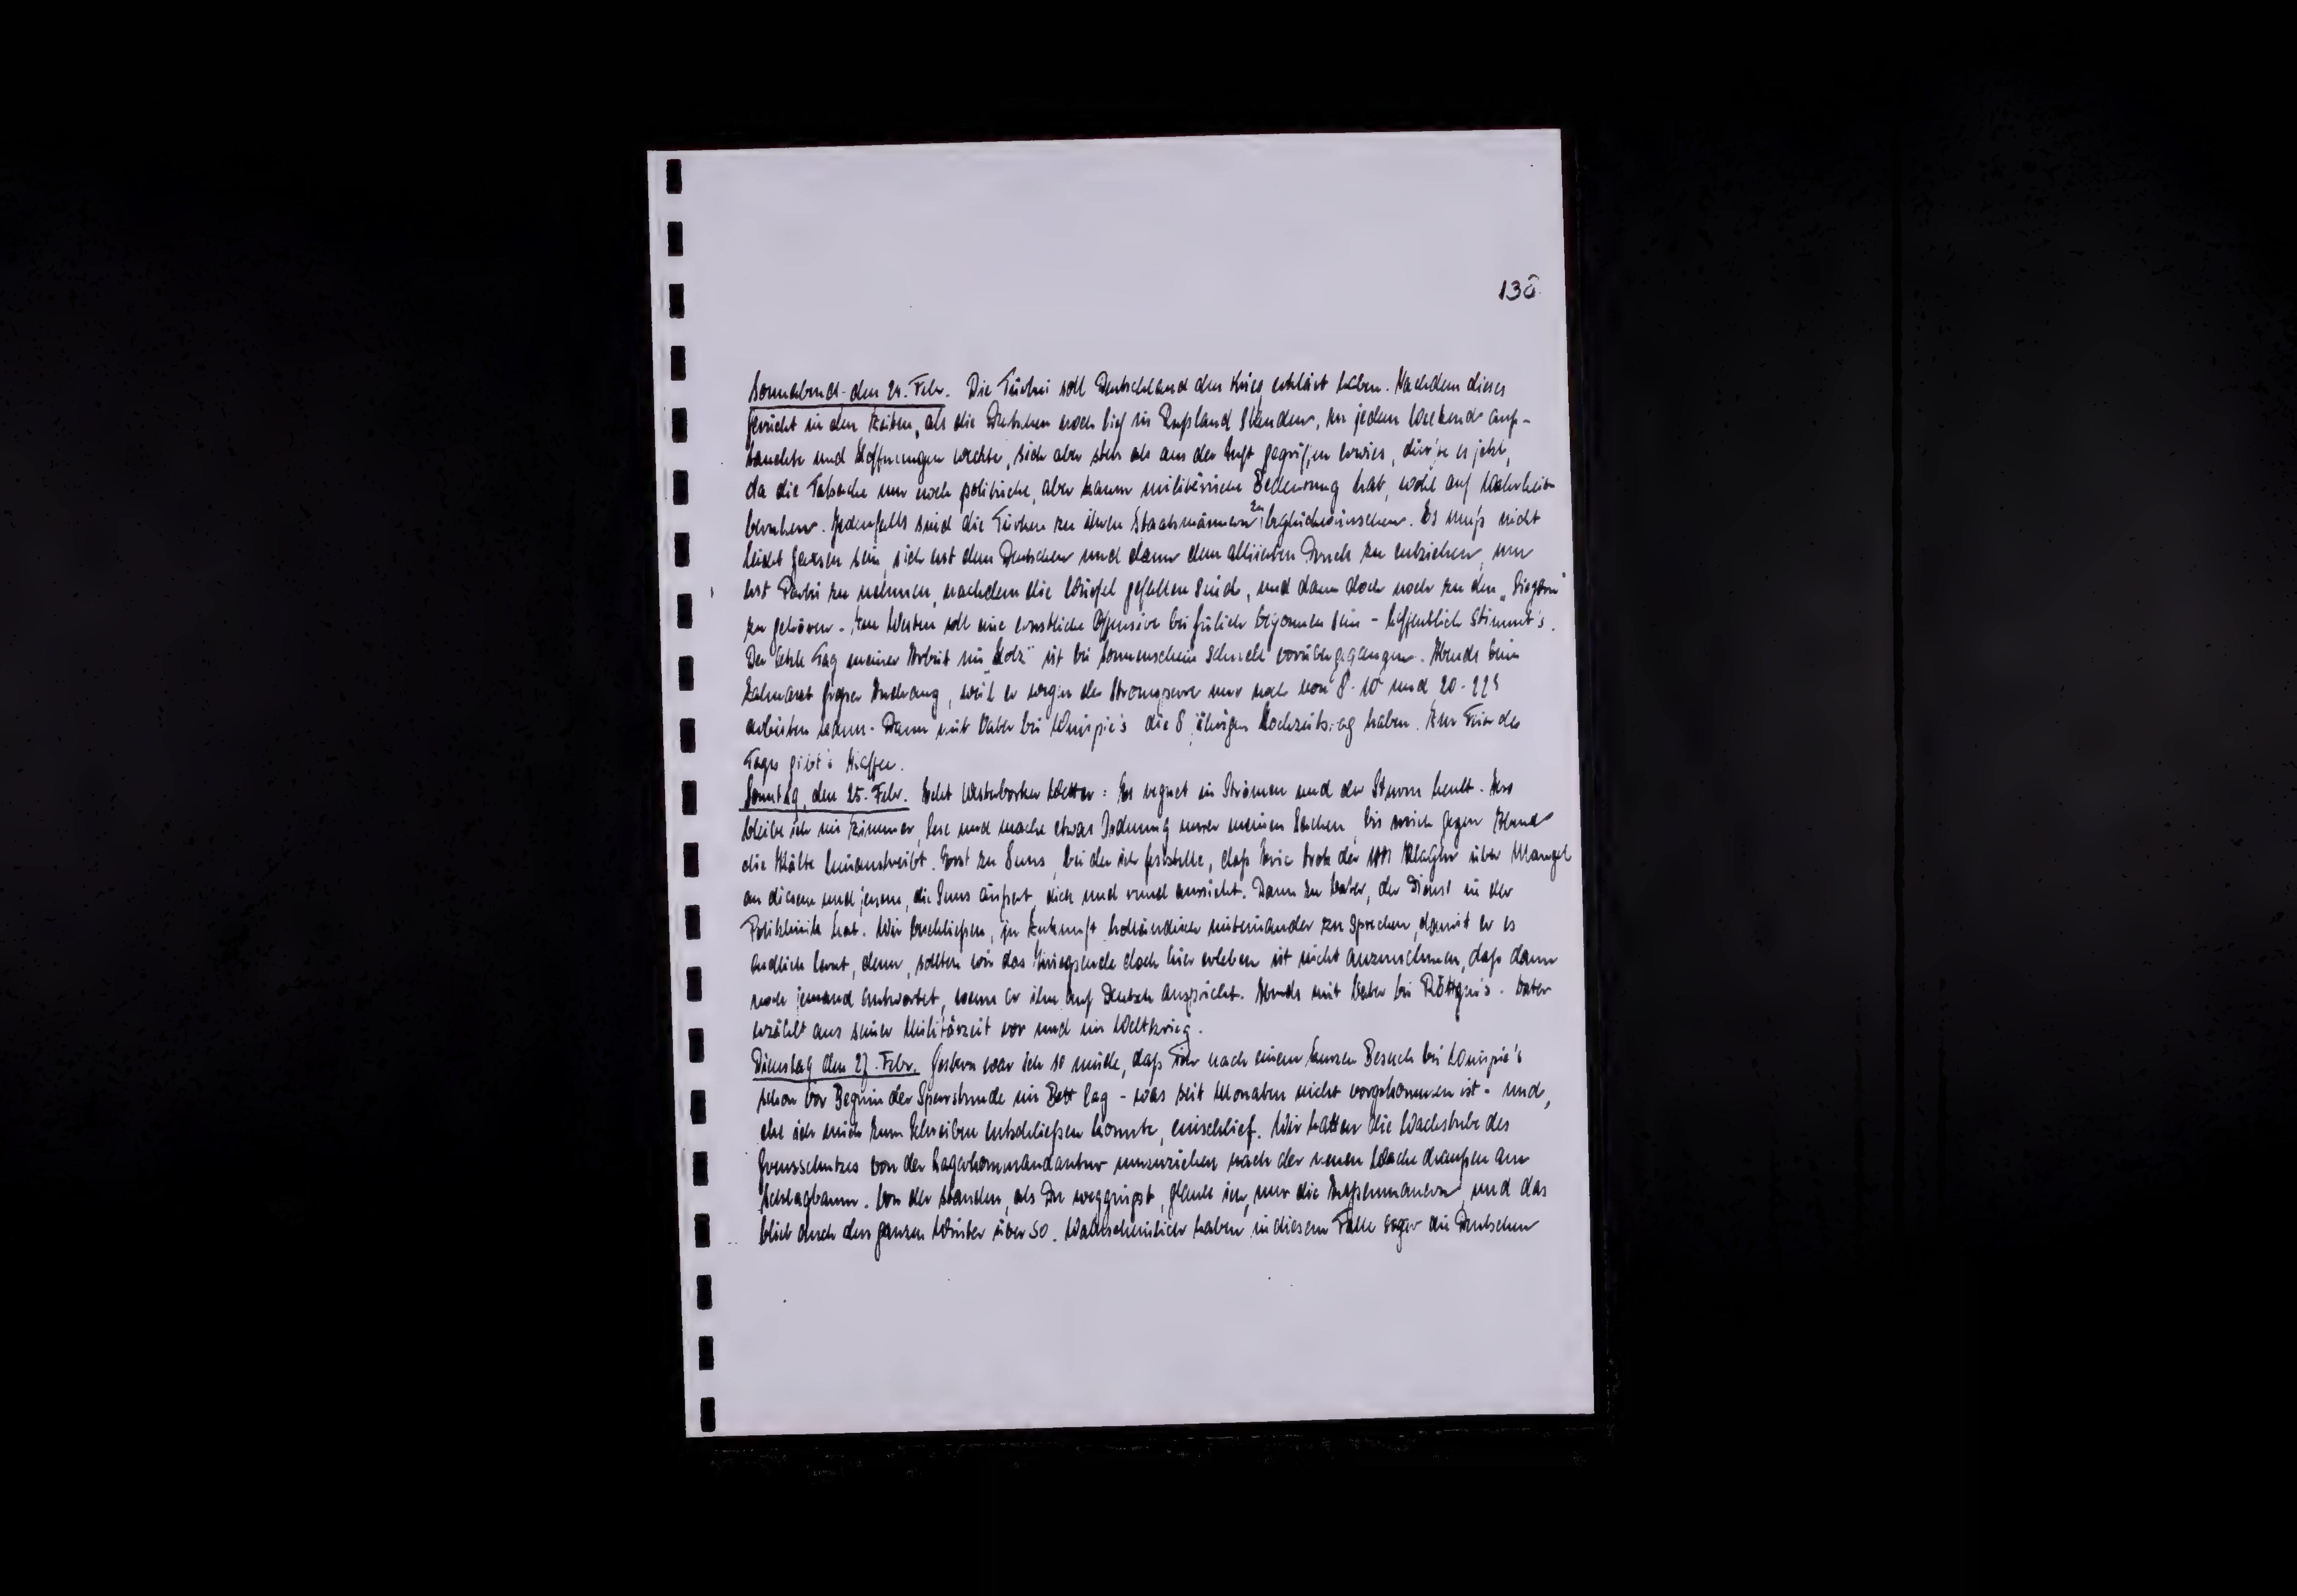 138
Sonnabend den 24. Febr. Die Türkei soll Deutschland den Krieg erklärt haben. Nachdem dieses
Gerücht in den Zeiten, als die Deutschen noch tief in Rußland standen, zu jedem Weekend auf-
tauchte und Hoffnungen weckte, sich aber stets als aus der Luft gegriffen erwies, dürfte es jetzt,
da die Tatsache nur noch politische, aber kaum militärische Bedeutung hat, wohl auf Wahrheit
beruhen. Jedenfalls sind die Türken zu ihren Staatsmännern zu beglückwünschen. Es muß nicht
leicht gewesen sein, sich erst dem Deutschen und dann dem alliierten Druck zu entziehen, um
erst Partei zu nehmen, nachdem die Würfel gefallen sind, und dann doch noch zu den „Siegern"
zu gehören. Im Westen soll eine ernstliche Offensive bei Jülich begonnen sein - hoffentlich stimmt's.
Der letzte Tag meiner Arbeit im „Holz" ist bei Sonnenschein schnell vorübergegangen. Abends beim
Zahnarzt großer Andrang, weil er wegen der Stromsperre nur noch von 8-10 und 20-22
arbeiten kann. Dann mit Vater bei die 8 jährigen Hochzeitstag haben. Zur Feier des
Tages gibt's Kaffee.
Sonntag, den 25. Febr. Echt Westerborker Wetter: Es regnet in Strömen und der Sturm heult.
bleibe ich im Zimmer, lese und mache etwas Ordnung unter meinen Sachen, bis mich gegen Abend
die Kälte hinaustreibt. Erst zu Suns, bei der ich feststelle, daß trotz der Klagen über Mangel
an diesem und jenem, die Suns äußert, dick und rund aussieht. Dann zu Vater, der Dienst in der
Poliklinik hat. Wir beschließen, in Zukunft holländisch miteinander zu sprechen, damit er es
endlich lernt, denn, sollten wir das Kriegsende doch hier erleben ist nicht anzunehmen, daß dann
noch jemand antwortet, wenn er ihn auf Deutsch anspricht. Abends mit Vater bei Röttgen's. Vater
erzählt aus seiner Militärzeit vor und im Weltkrieg.
Dienstag den 27. Febr. Gestern war ich so müde, daß ich nach einem kurzen Besuch bei
schon vor Beginn der Sperrstunde im Bett lag - was seit Monaten nicht vorgekommen ist - und,
ehe ich mich zum Schreiben entschließen konnte, einschlief. Wir hatten die Wachstube des
Grenzschutzes von der Lagerkommandantur umzuziehen nach der neuen Wache draußen am
Schlagbaum. Von der standen, als Du weggingst, glaube ich, nur die Außenmauern, und das
blieb auch den ganzen Winter über so. Wahrscheinlich haben in diesem Falle sogar die Deutschen